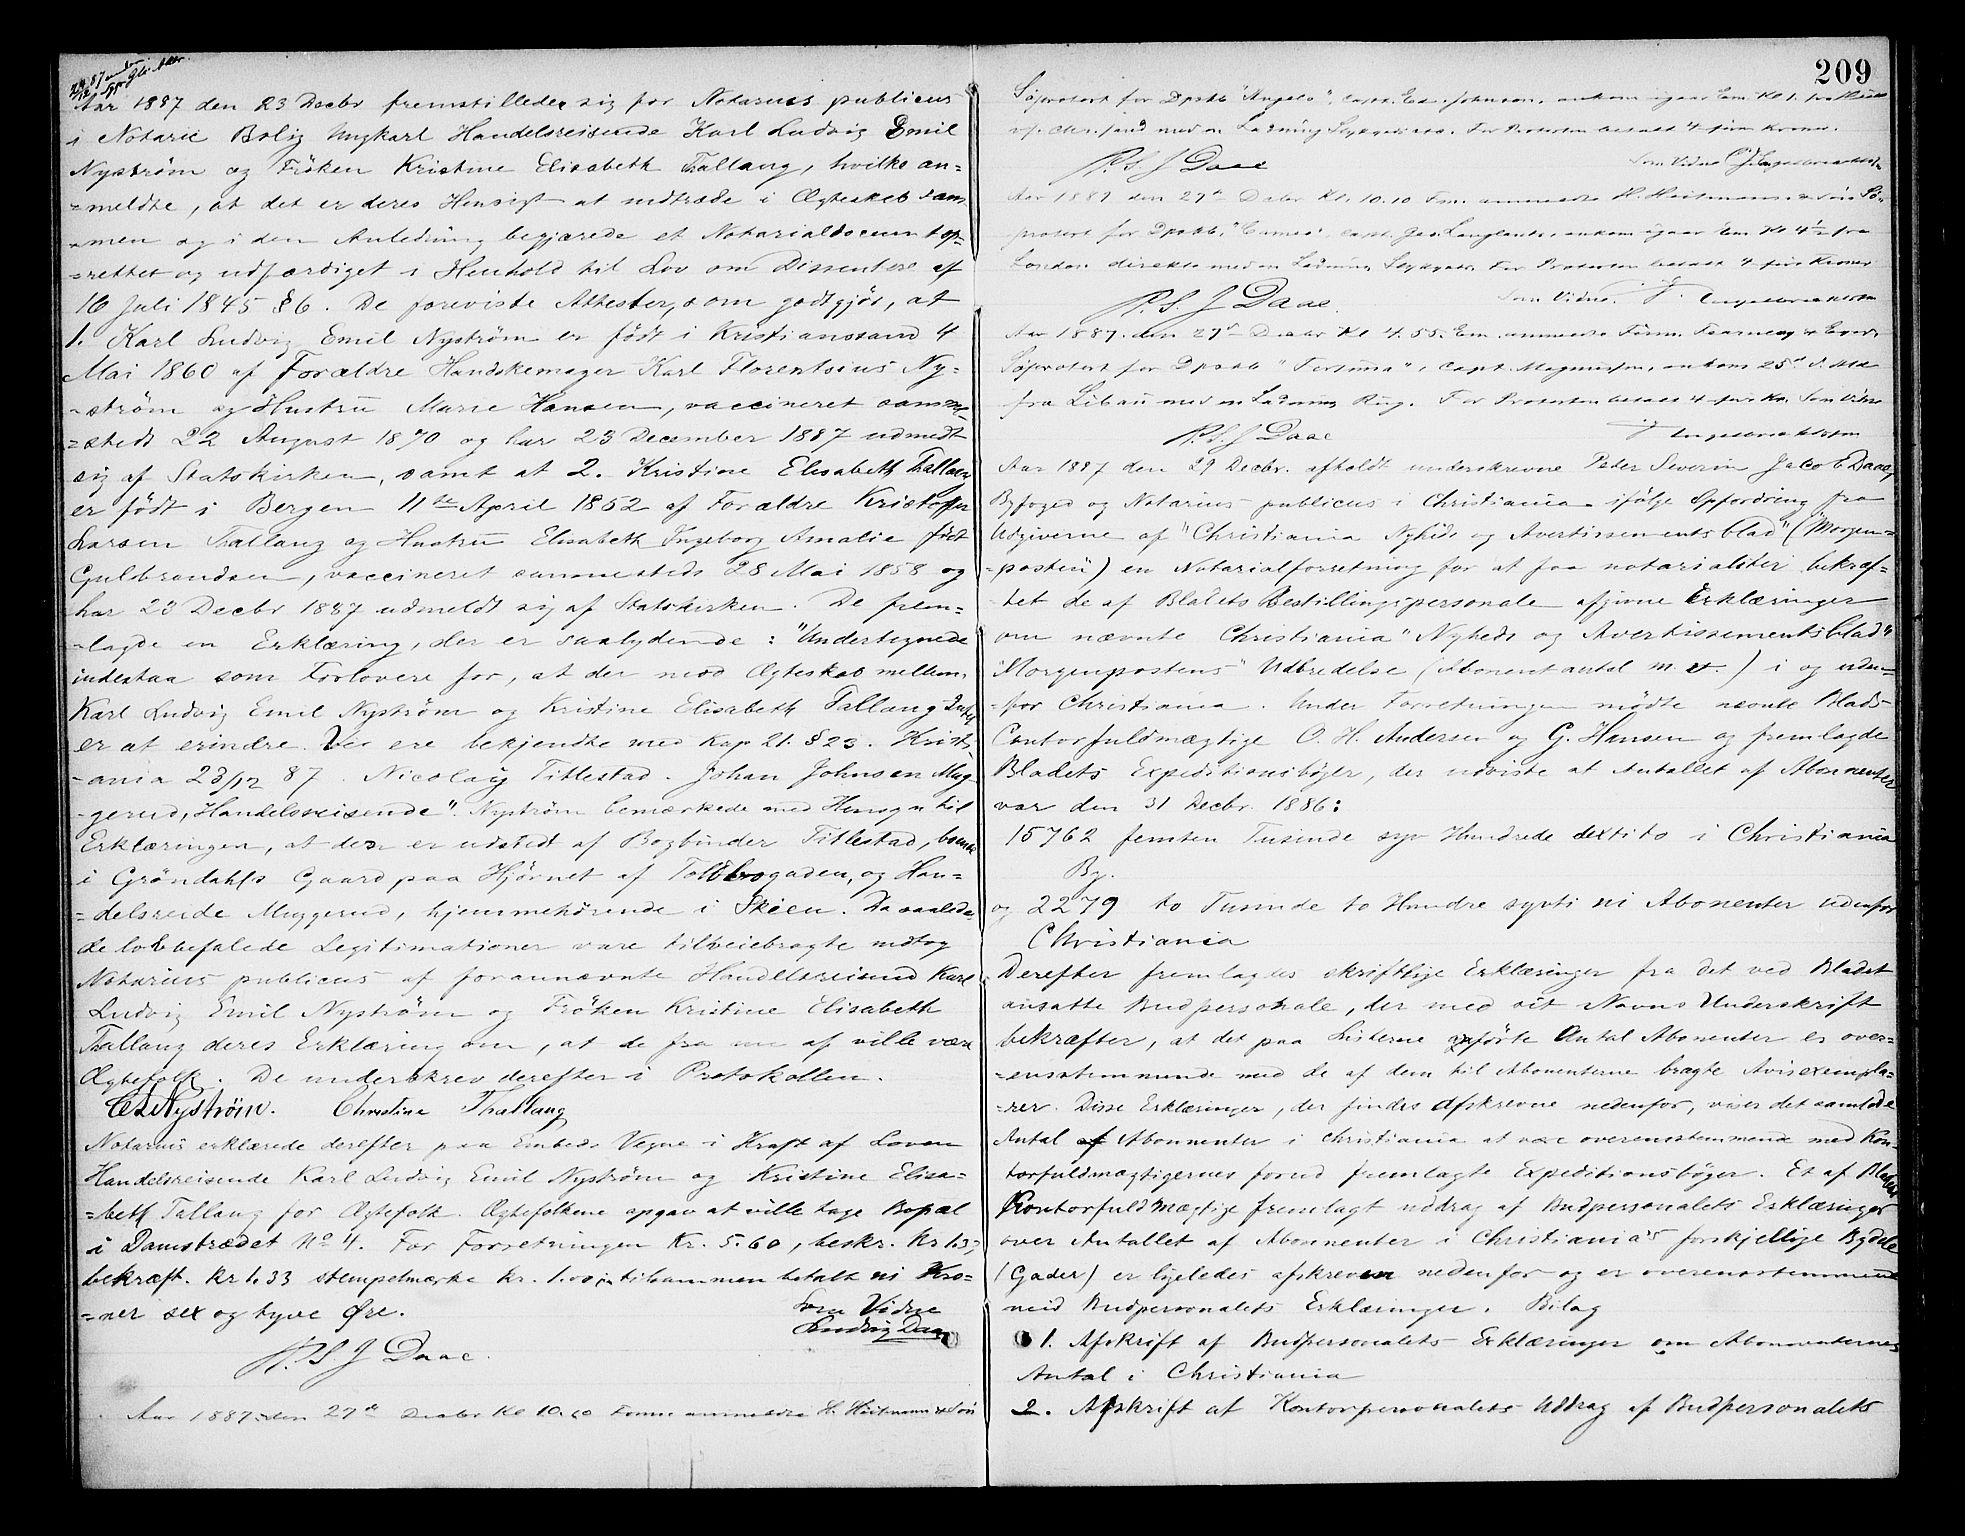 Aar 1887 den 23 Decbr fremstillede sig for Notarius publicus
i Notarii Bolig Ungkarl Handelsreisende Karl Ludvig Emil
Nyström og Fröken Kristine Elisabeth Tallang, hvilke an=
=meldte, at det er deres Hensigt at indtræde i Ægteskab sam
=men og i den Anledning begjærede et Notarialdocument op=
=rettet og udfærdiget i Henhold til Lov om Dissentere af
16 Juli 1845 § 6. De foreviste Attester, som godtgjör, at
1. Karl Ludvig Emil Nyström er födt i Kristianssand 4
Mai 1860 af Forældre Handskemager Karl Florentsius Ny=
=ström og Hustru Marie Hansen, vaccineret samme
=steds 22 August 1870 og har 23 December 1887 udmeldt
sig af Statskirken, samt at 2. Kristine Elisabeth Tallang
er födt i Bergen 11te April 1852 af Forældre Kristoffer
Larsen Tallang og Hustru Elisabeth Ingeborg Amalie födt
Gulbrandsen, vaccineret sammesteds 28 Mai 1858 og
har 23 Decbr 1887 udmeldt sig af Statskirken. De frem=
=lagde en Erklæring, der er saalydende: "Undertegnede
indestaa som Forlovere for, at der mod Ægteskab mellem
Karl Ludvig Emil Nyström og Kristine Elisabeth Tallang Intet
er at erindre. Vi ere bekjendte med Kap 21. § 23. Krist=
=ania 23/12 87. Nicolay Titlestad. Johan Johnsen Mug=
=gerud, Handelsreisende". Nyström bemærkede med Hensyn til
Erklæringen, at den er udstedt af Bogbinder Titlestad, boende
i Gröndahls Gaard paa Hjörnet af Toldbogaden, og Han=
=delsreisende Muggerud, hjemmehörende i Skien. Da saaledes
de lovbefalede Legitimationer vare tilveiebragte modtog
Notarius publicus af forannævnte Handelsreisende Karl
Ludvig Emil Nyström og Fröken Kristine Elisabeth
Tallang deres Erklæring om, at de fra nu af ville være
Ægtefolk. De underskrev derefter i Protokollen.
Nyström. Christine Thallang
Notarius erklærede derefter paa Embeds Vegne i Kraft af Loven
Handelsreisende Karl Ludvig Emil Nyström og Kristine Elisa=
=beth Tallang for Ægtefolk. Ægtefolkene opgav at ville tage Bopæl
i Damstrædet No 4. For Forretningen Kr. 5.60, beskr. Kr 1.33
bekræft. Kr 1.33 stempelmærke Kr. 1.00, tilsammen betalt ni Kro=
=ner sex og tyve Øre.
Som Vidne
Ludvig Daae
P. S. J Daae.
Aar 1887 den 27de Decbr Kl 10.10 Form anmeldte H. Heitmann & Sön
209
Söprotest for Dpskb "Angelo", Capt. Johnson, ankom igaar Em. Kl 1. fra Hull
med en Ladning Stykgods. For Protesten betalt 4 fire Kroner.
P. S. J Daae
Som Vidne Engebrechtsen
Aar 1887 den 27de Decbr Kl. 10.10 Fm. anmeldte H. Heitmann & Sön Sö=
protest for Dpskb. Capt. Langlands, ankom igaar Em Kl 4½ fra
London direkte med en Ladning Stykgods. For Protesten betalt 4 fire Kroner
P. S. J Daae.
Som Vidne. Engebrechtsen
Aar 1887. den 27de Decbr Kl 4.55. Em. anmeldte Firma Fearnley & Eger
Söprotest for Dpskb "Fortuna", Capt Magnussen, ankom 25de d. Md
fra Libau med en Ladning Rug. For Protesten betalt 4 fire Kr. Som Vidne
P. S. J Daae
Engebrechtsen
Aar 1887 den 29 Decbr. afholdt underskrevne Peter Severin Jacob Daae,
Byfoged og Notarius publicus i Christiania ifölge Opfordring fra
Udgiverne af "Christiania Nyheds og Avertissementsblad" ("Morgen=
=posten) en Notarialforretning for at faa notarialiter bekræf=
=tet de af Bladets Bestillingspersonale afgivne Erklæringer
om nævnte Christiania "Nyheds og Avertissementsblad"
"Morgenpostens" Udbredelse (Abonentantal m. v.) i og uden=
=for Christiania. Under Forretningen mödte nævnte Blads
Contorfuldmægtige O. H. Andersen og G. Hansen og fremlagde
Bladets Expeditionsböger, der udviste at Antallet af Abonnenter
var den 31 Decbr. 1886:
15762 femten Tusinde syv Hundrede sexti to i Christiania
By.
og 2279 to Tusinde to Hundre sytti ni Abonenter udenfor
Christiania
Derefter fremlagdes skriftlige Erklæringer fra det ved Bladet
ansatte Budpersonale, der med sit Navns Underskrift
bekræfter, at det paa Listerne opförte Antal Abonenter er over=
=ensstemmende med de af dem til Abonenterne bragte Avisexempla=
=rer. Disse Erklæringer, der findes afskrevne nedenfor, viser det samlede
Antal af Abonnenter i Christiania at være overensstemmende med Kon=
torfuldmægtigernes forud fremlagte Expeditionsböger. Et af Bladets
Kontorfuldmægtige fremlagt Uddrag af Budpersonalets Erklæringer
over Antallet af Abonnenter i Christiania's forskjellige Bydele
(Gader) er ligeledes afskreven nedenfor og er overensstemmende
med Budpersonalets Erklæringer. Bilag
1. Afskrift af Budpersonalets Erklæringer om Abonnenternes
Antal i Christiania
2. Afskrift af Kontorpersonalets Uddrag af Budpersonalets